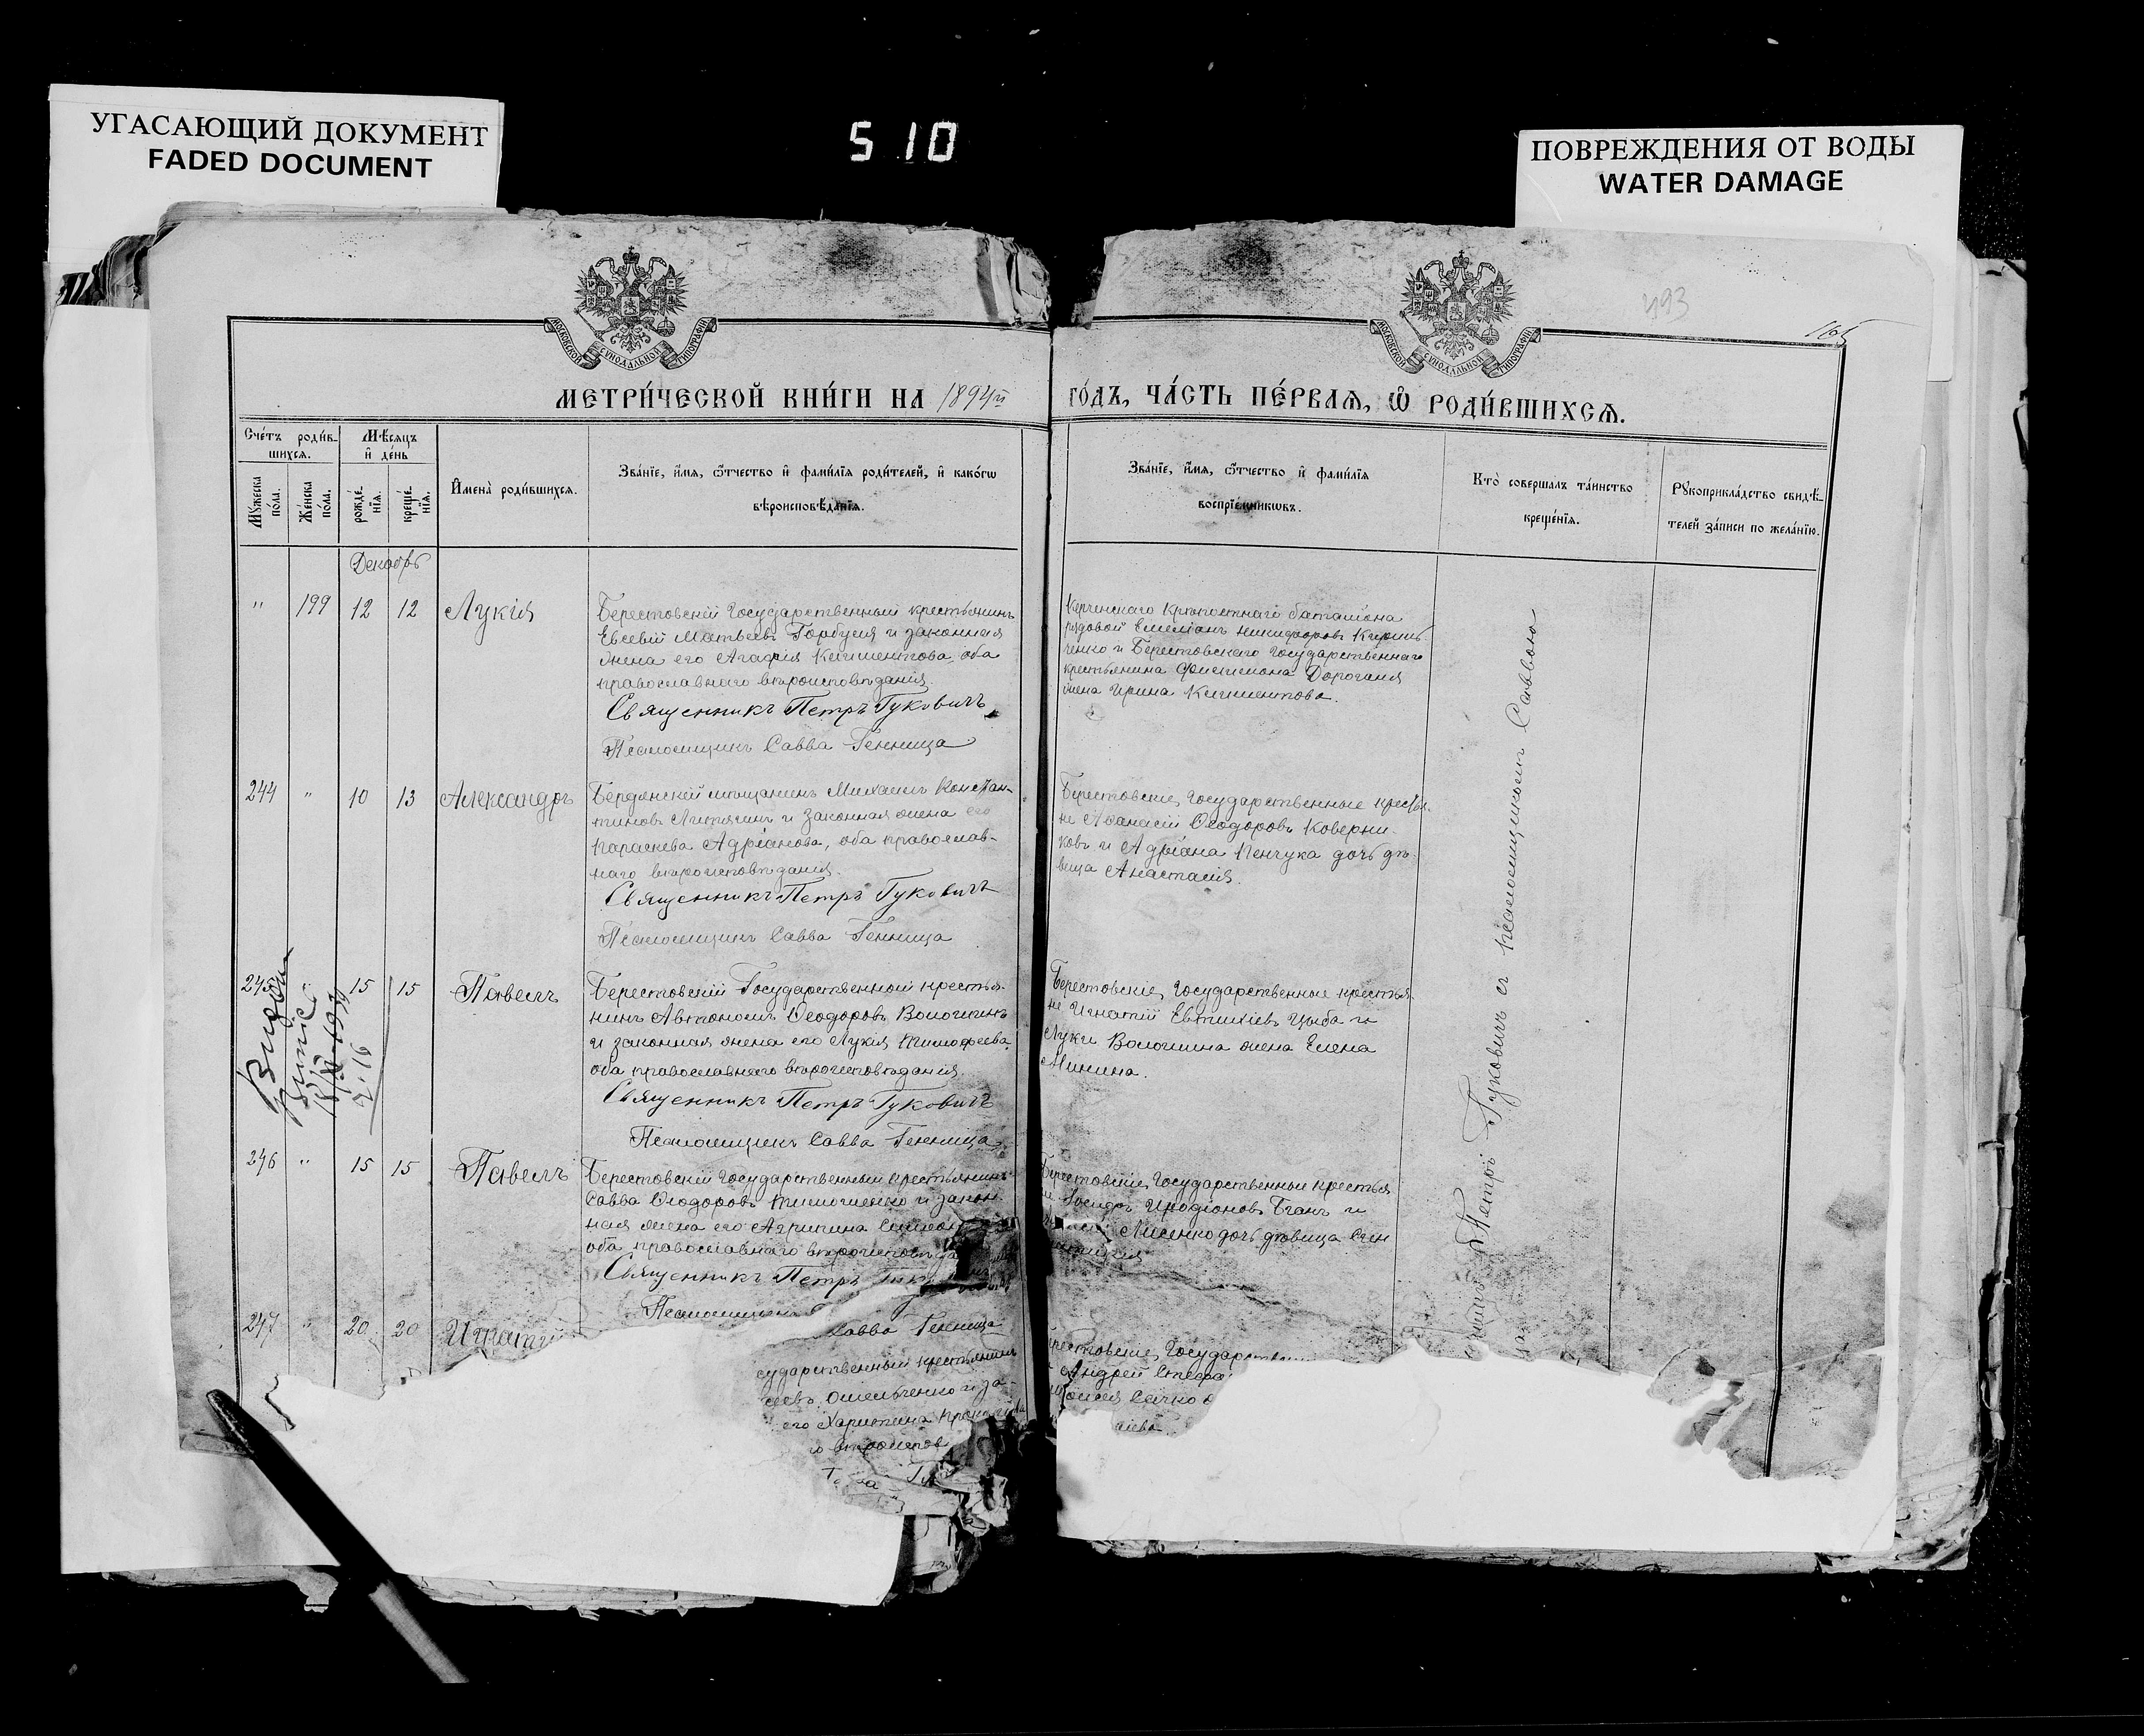 УГАСАЮЩИЙ ДОКУМЕНТ
FADED DOCUMENT
510
ПОВРЕЖДЕНИЯ ОТ ВОДЫ
WATER DAMAGE
493
165
МОСКОВСКОЙ СѴНОДАЛЬНОЙ ТИПОГРАФІИ
МОСКОВСКОЙ СѴНОДАЛЬНОЙ ТИПОГРАФІИ
МЕТРИ́ЧЕСКОЙ КНИ́ГИ НА 1894й
ГО́ДЪ, ЧА́СТЬ ПЕ́РВАѦ, Ѡ҆ РОДИ́ВШИХСѦ.
Сче́тъ роди́в-
шихсѧ.
Мꙋжеска по́ла.
Же́нска по́ла.
Мѣ́сѧцъ
и҆ де́нь
рожде́-
нїѧ.
креще́-
нїѧ.
И҆мена̀ роди́вшихсѧ.
Зва́нїе, и҆́мѧ, ѻ҆́тчество и҆ фами́лїѧ роди́телей, и҆ како́гѡ
вѣроисповѣ́данїѧ.
Зва́нїе, и҆́мѧ, ѻ҆́тчество и҆ фами́лїѧ
воспрїе́мникѡвъ.
Кто̀ соверша́лъ та́инство
креще́нїѧ.
Рꙋкоприкла́дство свидѣ́-
телей за́писи по жела́нїю.
Декабрь
" 199 12 12 Лукія
Берестовскій Государственный крестьянинъ
Евсевій Матѳеевъ Горбуля и законная
жена его Агафія Климентова, оба
православнаго вѣроисповѣданія.
Священникъ Петръ Гуковичъ
Псаломщикъ Савва Генница
Керченскаго Крѣпостнаго баталіона
рядовой Емеліанъ Никифоровъ Кирин-
ченко и Берестовскаго Государственнаго
крестьянина Филимона Дороганя
жена Ирина Климентова.
244 " 10 13 Александръ
Бердянскій мѣщанинъ Михаилъ Констан-
тиновъ и законная жена его
Параскева Адріанова, оба православ-
наго вѣроисповѣданія.
Священникъ Петръ Гуковичъ
Псаломщикъ Савва Генница
Берестовскіе Государственные крестья-
не Аѳанасій Ѳеодоровъ Коверни-
ковъ и Адріана Пенчука дочь дѣ-
вица Анастасія.
245 " 15 15 Павелъ
Берестовскій Государственный крестья-
нинъ Автономъ Ѳеодоровъ Волошинъ
и законная жена его Лукія Тимофеева,
оба православнаго вѣроисповѣданія.
Священникъ Петръ Гуковичъ
Псаломщикъ Савва Генница
Берестовскіе Государственные крестья-
не Игнатій Евтихіевъ Цыба и
Луки Волошина жена Елена
Минина.
246 " 15 15 Павелъ
Берестовскій Государственный крестьянинъ
Савва Ѳеодоровъ Тимошенко и закон-
ная жена его Агрипина
оба православнаго
Священникъ Петръ
Псаломщикъ Савва Генница
Берестовскіе Государственные крестья
не Иродіоновъ Бганъ и
Лисенко дочь дѣвица
247 " 20 20 Игнатій
сударственный крестьянинъ
Омельченко и за-
его Харитина
Берестовскіе Государственны
Андрей
Сѣчко
Петръ Гуковичъ съ псаломщикомъ Саввою